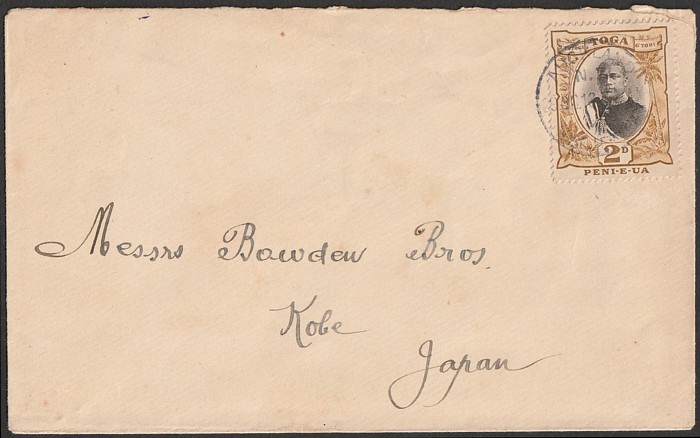 TOGA
2D
PENI·E·UA
Messrs Bowden Bros.
Kobe
Japan